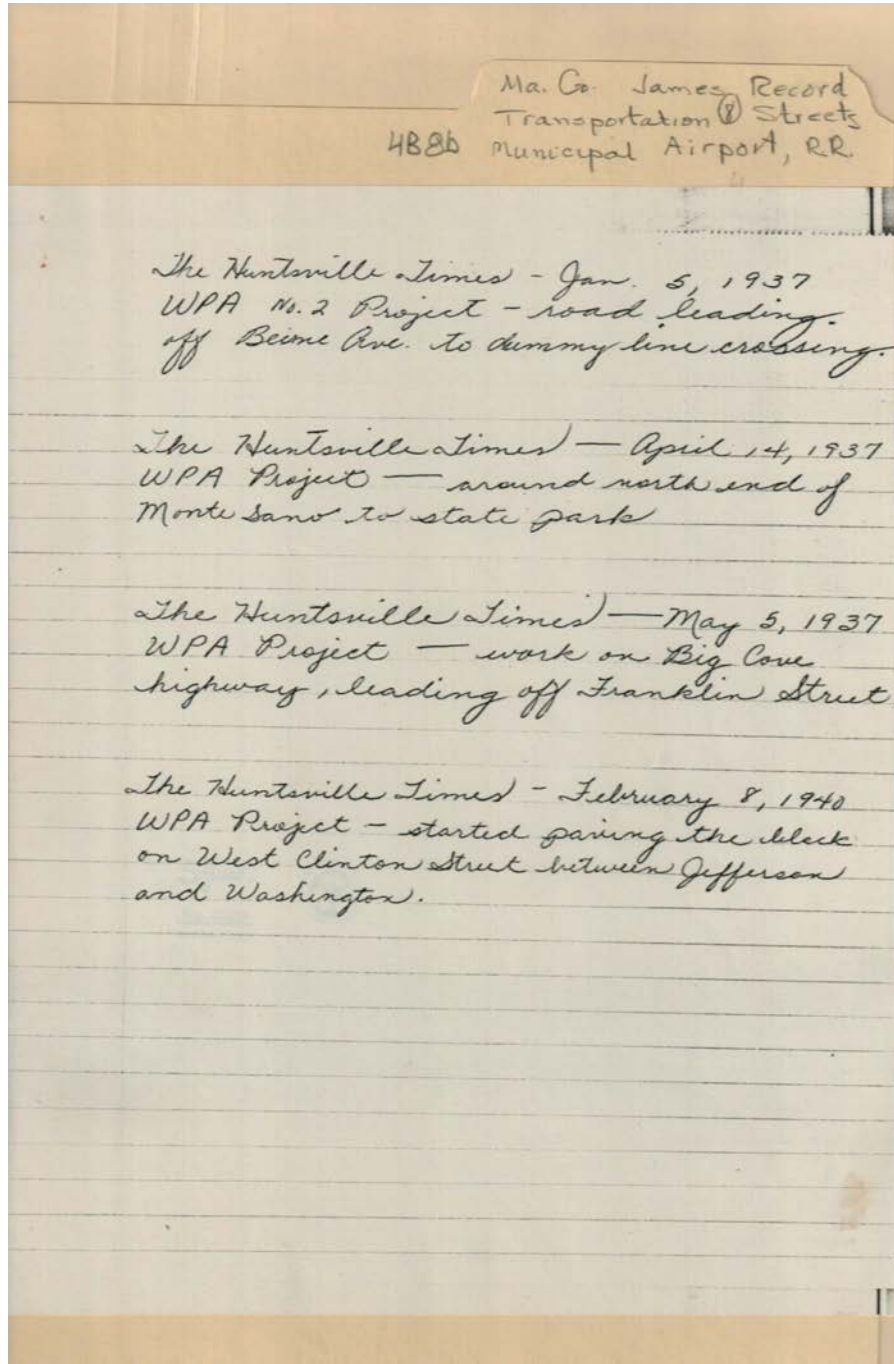 Ma. Co. James Record
Transportation (8) Streets
4B8b Municipal Airport, R.R.
The Huntsville Times - Jan. 5, 1937
WPA No. 2 Project - road leading
off Beirne Ave. to dummy line crossing.
The Huntsville Times — April 14, 1937
WPA Project — around north end of
Monte Sano to state park
The Huntsville Times — May 5, 1937
WPA Project — work on Big Cove
highway, leading off Franklin Street
The Huntsville Times - February 8, 1940
WPA Project - started paving the block
on West Clinton Street between Jefferson
and Washington.